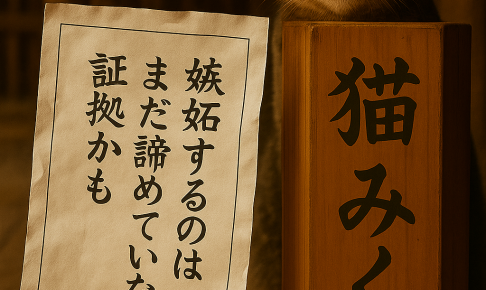 嫉妬するのは
まだ諦めていな
証拠かも
猫みく